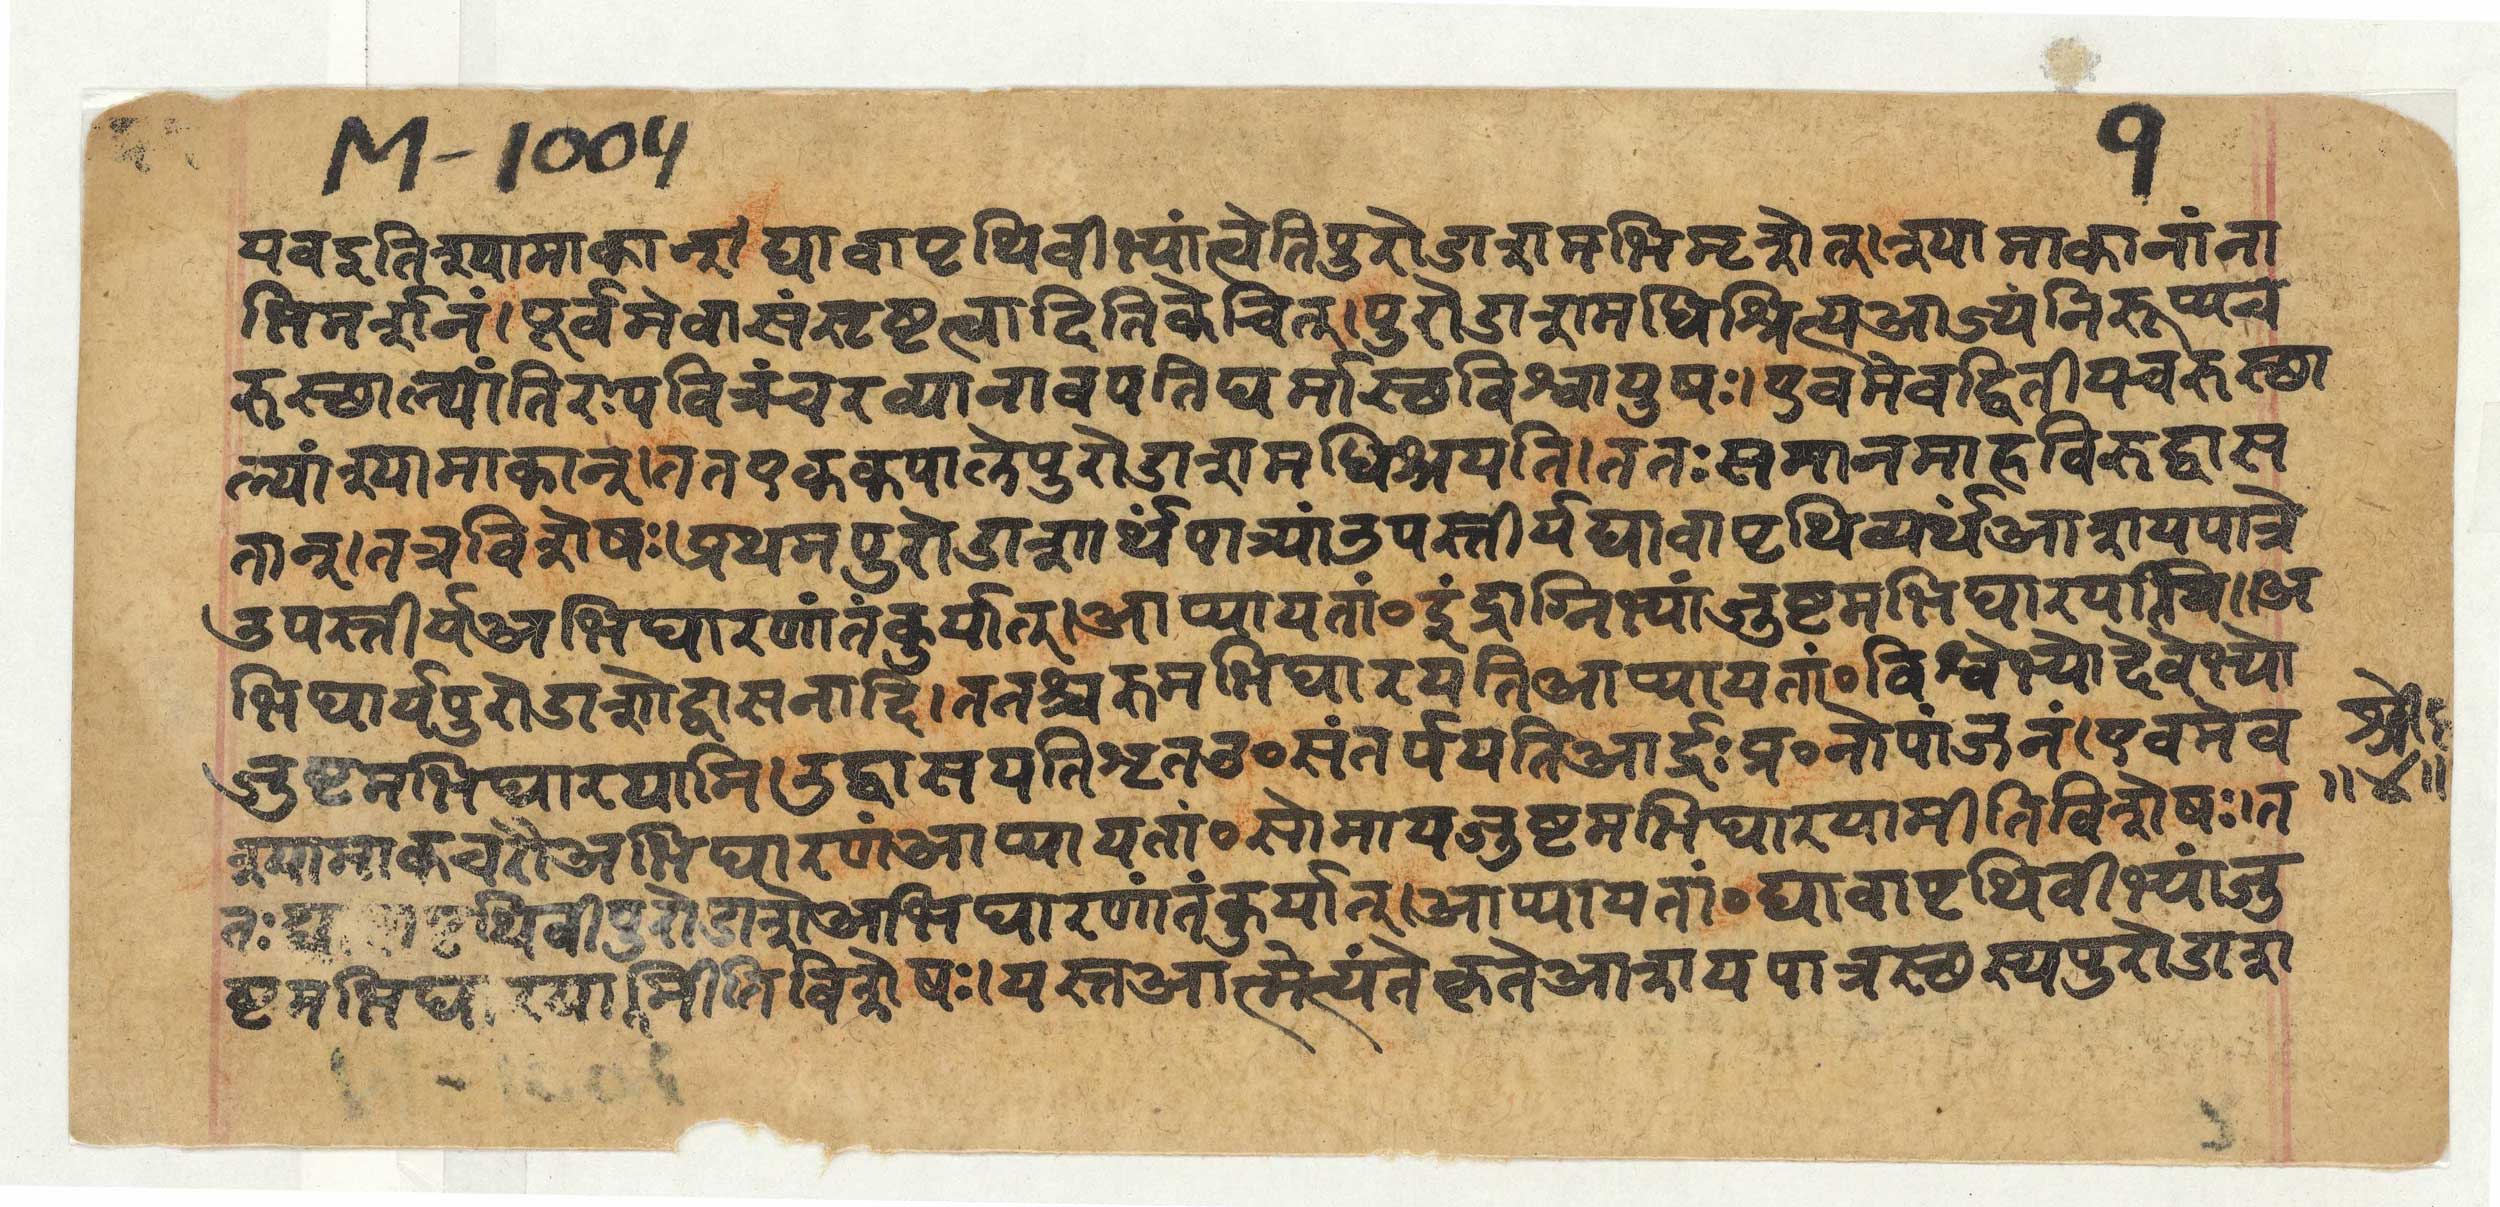 M-1004
१
यवइतिश्यामाकान्। द्यावापृथिवीभ्यांत्वेतिपुरोडाशमभिमृशेत्। श्यामाकानांना
भिमर्शनं। पूर्वमेवासंसृष्टत्वादितिकेचित्। पुरोडाशमधिश्रित्यआज्यंनिरूप्यच
रुस्थाल्यांतिरःपवित्रंचरव्यानावपतिघर्मास्थविश्वायुषः। एवमेवद्वितीयचरुस्था
ल्यांश्यामाकान्। ततएककपालेपुरोडाशमधिश्रयति। ततःसमानमाहविरुद्वास
नान्। तत्रविशेषः। प्रथमपुरोडाशार्थंपात्र्यांउपस्तीर्यद्यावापृथिव्यर्थंआशयपात्रे
उपस्तीर्यअभिघारणांतंकुर्यात्। आप्यायतां॰इंद्राग्निभ्यांजुष्टमभिघारयामि॥ अ
भिघार्यपुरोडाशोद्वासनादि। ततश्चरुमभिघारयतिआप्यायतां॰विश्वेभ्योदेवेभ्यो
जुष्टमभिघारयामि। उद्वासयतिशृतउ॰संतर्पयतिआर्द्रःप्र॰नोपांजनं। एवमेव
श्यामाकचरौअभिघारणंआप्यायतां॰सोमायजुष्टमभिघारयामीतिविशेषः। त
तःद्यावापृथिवीपुरोडाशेअभिघारणांतंकुर्यात्। आप्यायतां॰द्यावापृथिवीभ्यांजु
ष्टमभिघारयामीतिविशेषः। यस्तआत्मेत्यंतेकृतेआशयपात्रस्थस्यपुरोडाश
॥४॥